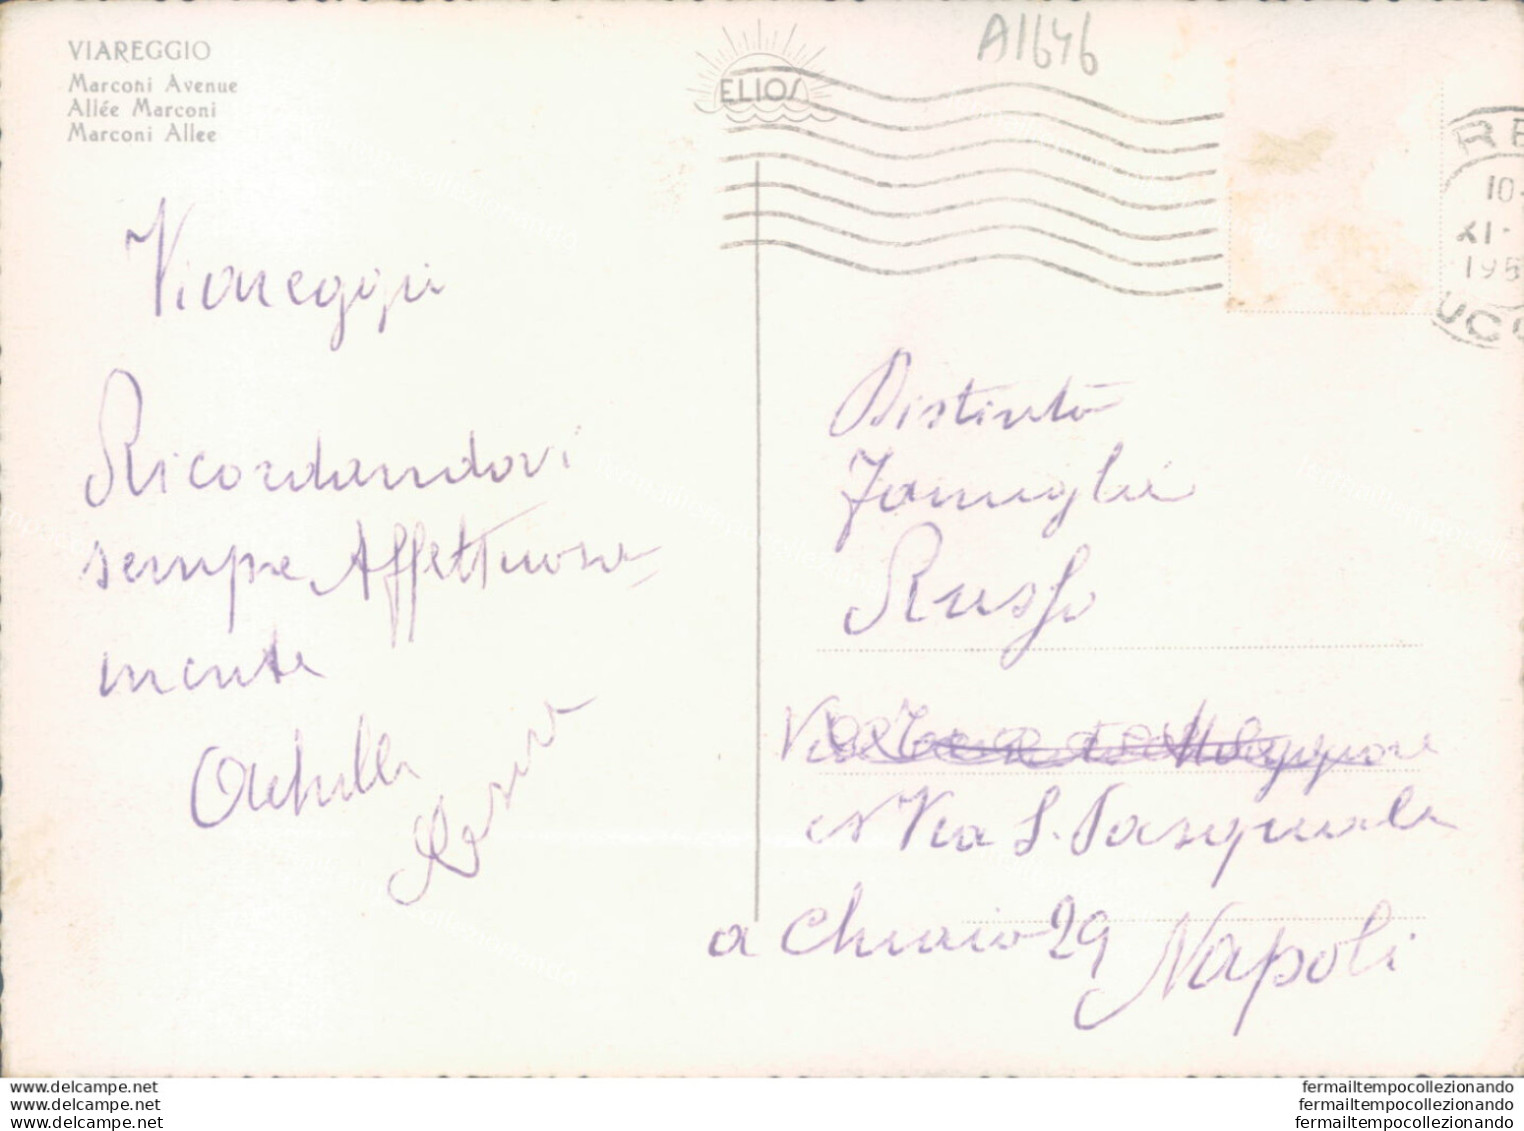 VIAREGGIO
Marconi Avenue
Allée Marconi
Marconi Allee
ELIOS
A1646
10
XI
195
Viareggio
Ricordandovi
sempre Affettuosa
mente
Achille
Distinta
Famiglia
Russo
Via Maggiore
Via S. Pasquale
a Chiaia 29 Napoli
www.delcampe.net
www.delcampe.net
www.delcampe.net
fermailtempocollezionando
fermailtempocollezionando
fermailtempocollezionando